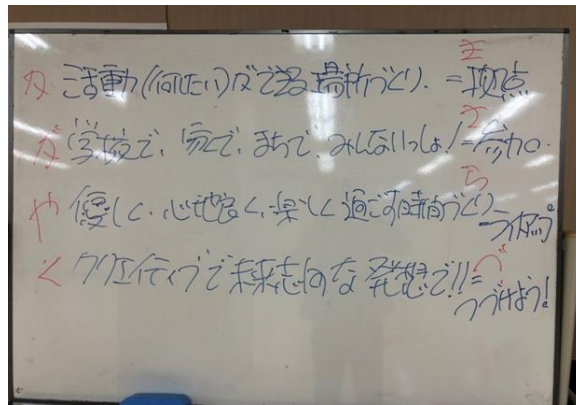 き
か 活動(何したい)ができる場所づくり. =拠点
さ
が 学校で、家で、まちで、みんないっしょ!=参加。
ら
や 優しく、心地良く、楽しく過ごす時間づくり
づ
く クリエイティブで未来志向な発想で!!=
つづけよう!